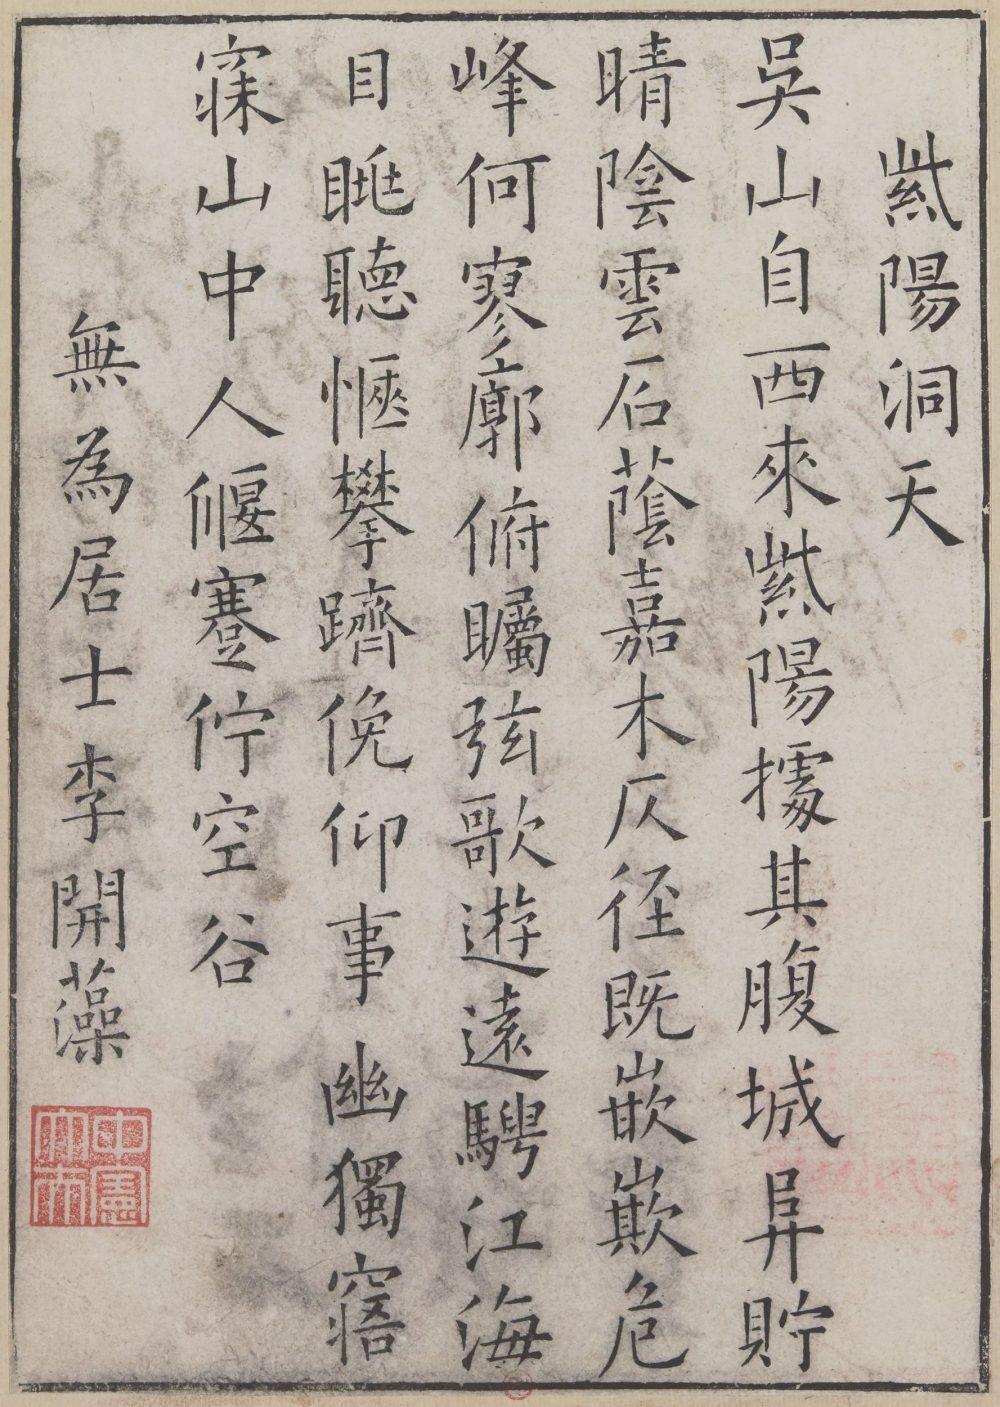 紫陽洞天
吳山自西來紫陽據其腹城异貯
晴陰雲石蔭嘉木仄徑既嵌嶔危
峰何寥廓俯矚弦歌遊遠騁江海
目眺聽愜攀躋俛仰事幽獨寤
寐山中人偃蹇佇空谷
無為居士李開藻
中憲大夫